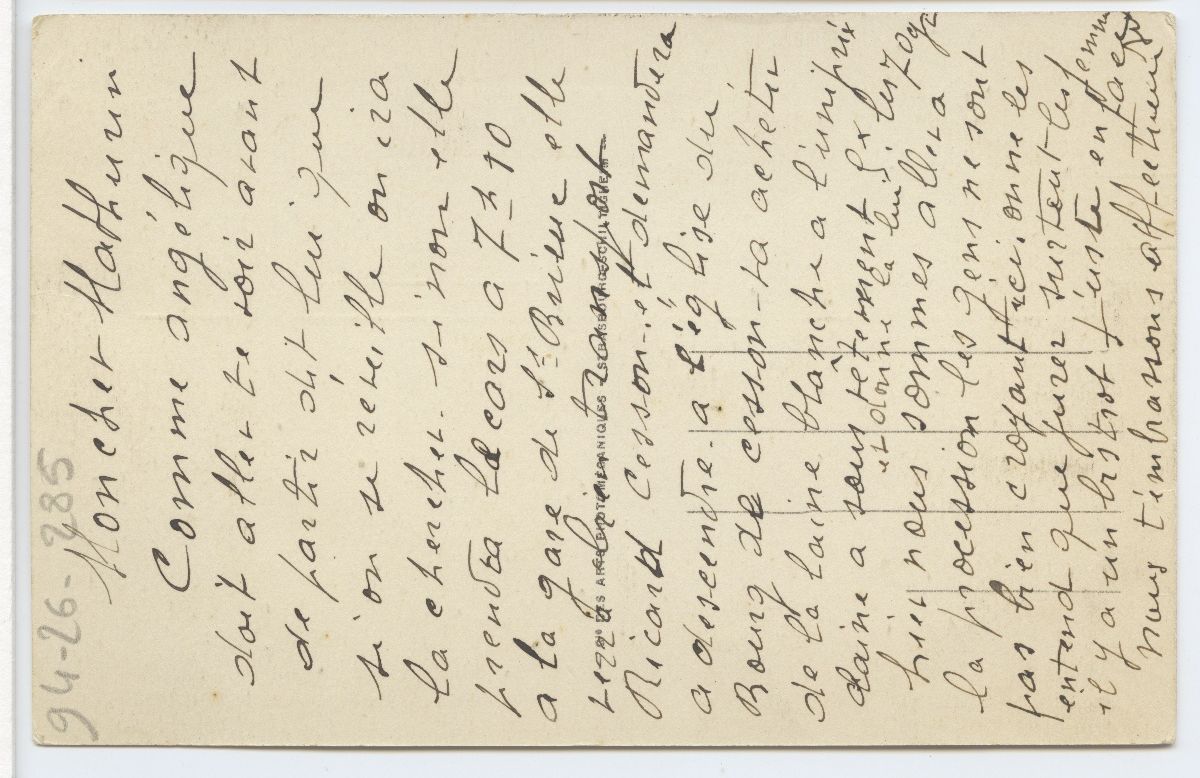 94-26-285
Mon cher Mathurin
Comme angélique
doit aller te voir avant
de partir dit lui que
si on se réveille on ira
la chercher. sinon elle
prendra le cars a 7h10
a la gare de St Brieuc elle
verra bien transport
Ricard Cesson. et demandera
a descendre. a l'église du
Bourg de cesson - ta acheter
de la laine blanche a l'uniprix
laine a sous têtement 5 fr les 70 gr
et donne la lui
hier nous sommes allera
la procession les gens ne sont
pas bien croyant ici, on ne les
entend que jurer surtout les femmes
il y a un bistrot juste en face
nous t'embrassons affectueusement
LES ARTS PHOTOMÉCANIQUES